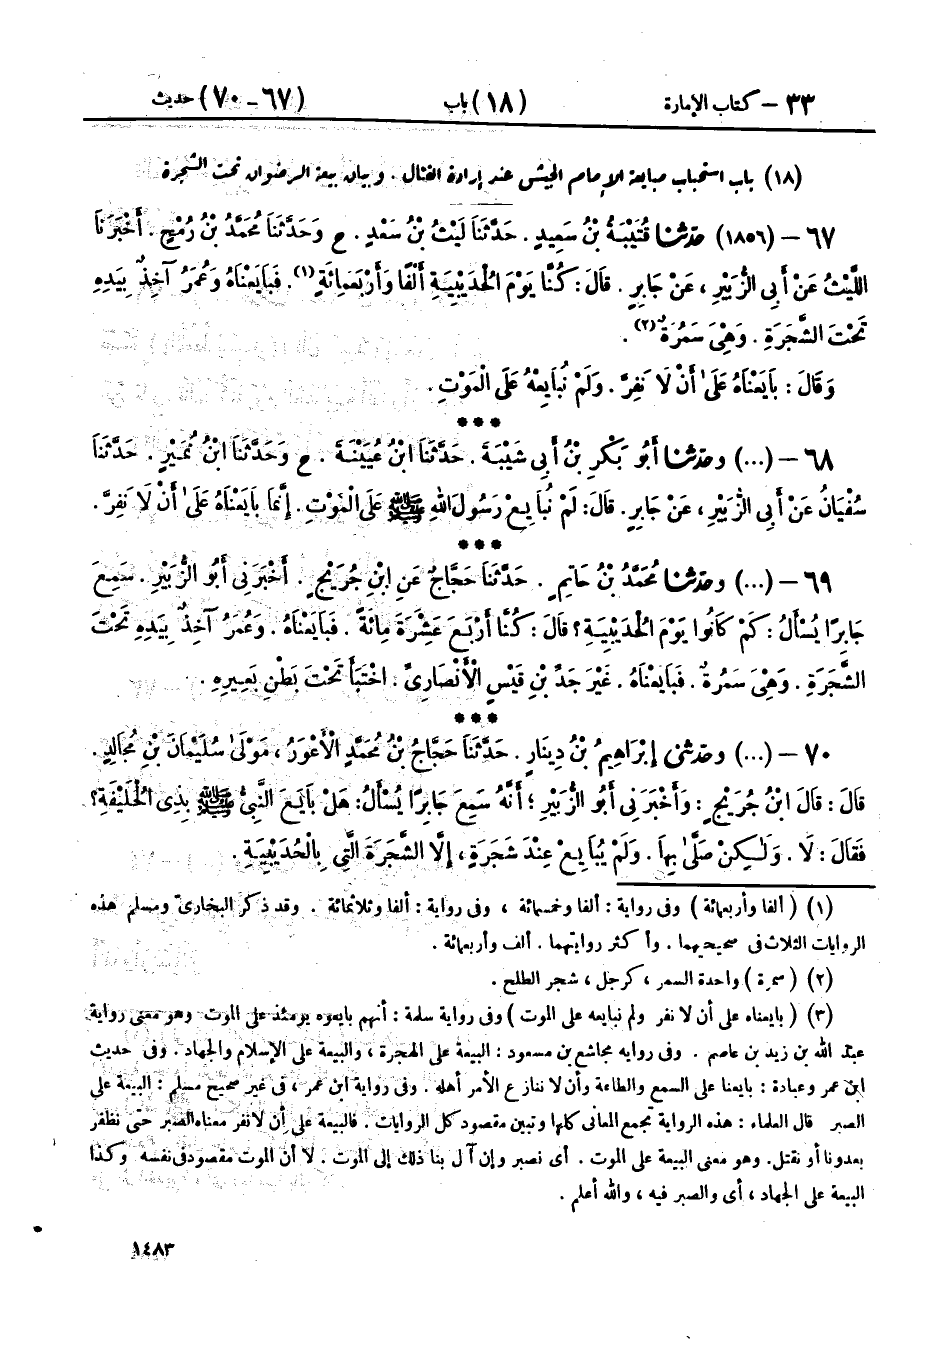 ٣٣ – كتاب الإمارة (١٨) باب (٦٧–٧٠) حديث
(١٨) باب استحباب مبايعة الإمام الجيش عند إرادة القتال . وبيان بيعة الرضوان تحت الشجرة
٦٧ – (١٨٥٦) حَدَّثَنَا قُتَيْبَةُ بْنُ سَعِيدٍ . حَدَّثَنَا لَيْثُ بْنُ سَعْدٍ . ح وَحَدَّثَنَا مُحَمَّدُ بْنُ رُمْحٍ . أَخْبَرَنَا
اللَّيْثُ عَنْ أَبِي الزُّبَيْرِ ، عَنْ جَابِرٍ . قَالَ : كُنَّا يَوْمَ الْحُدَيْبِيَةِ أَلْفًا وَأَرْبَعَمِائَةٍ (١) . فَبَايَعْنَاهُ وَعُمَرُ آخِذٌ بِيَدِهِ
تَحْتَ الشَّجَرَةِ . وَهْىَ سَمُرَةٌ (٢) .
وَقَالَ : بَايَعْنَاهُ عَلَىٰ أَنْ لَا نَفِرَّ . وَلَمْ نُبَايِعْهُ عَلَى الْمَوْتِ .
* * *
٦٨ – (...) وحَدَّثَنَا أَبُو بَكْرِ بْنُ أَبِي شَيْبَةَ . حَدَّثَنَا ابْنُ عُيَيْنَةَ . ح وَحَدَّثَنَا ابْنُ نُمَيْرٍ . حَدَّثَنَا
سُفْيَانُ عَنْ أَبِي الزُّبَيْرِ ، عَنْ جَابِرٍ . قَالَ : لَمْ نُبَايِعْ رَسُولَ اللهِ ﷺ عَلَى الْمَوْتِ . إِنَّمَا بَايَعْنَاهُ عَلَىٰ أَنْ لَا نَفِرَّ .
* * *
٦٩ – (...) وحَدَّثَنَا مُحَمَّدُ بْنُ حَاتِمٍ . حَدَّثَنَا حَجَّاجٌ عَنِ ابْنِ جُرَيْجٍ . أَخْبَرَنِي أَبُو الزُّبَيْرِ . سَمِعَ
جَابِرًا يُسْأَلُ : كَمْ كَانُوا يَوْمَ الْحُدَيْبِيَةِ ؟ قَالَ : كُنَّا أَرْبَعَ عَشْرَةَ مِائَةً . فَبَايَعْنَاهُ . وَعُمَرُ آخِذٌ بِيَدِهِ تَحْتَ
الشَّجَرَةِ . وَهْىَ سَمُرَةٌ . فَبَايَعْنَاهُ . غَيْرَ جَدِّ بْنِ قَيْسٍ الْأَنْصَارِىِّ . اخْتَبَأَ تَحْتَ بَطْنِ بَعِيرِهِ .
* * *
٧٠ – (...) وحَدَّثَنِي إِبْرَاهِيمُ بْنُ دِينَارٍ . حَدَّثَنَا حَجَّاجُ بْنُ مُحَمَّدٍ الْأَعْوَرُ ، مَوْلَىٰ سُلَيْمَانَ بْنِ مُجَالِدٍ .
قَالَ : قَالَ ابْنُ جُرَيْجٍ : وَأَخْبَرَنِي أَبُو الزُّبَيْرِ ؛ أَنَّهُ سَمِعَ جَابِرًا يُسْأَلُ : هَلْ بَايَعَ النَّبِيُّ ﷺ بِذِي الْحُلَيْفَةِ ؟
فَقَالَ : لَا . وَلَـٰكِنْ صَلَّىٰ بِهَا . وَلَمْ يُبَايِعْ عِنْدَ شَجَرَةٍ ، إِلَّا الشَّجَرَةَ الَّتِي بِالْحُدَيْبِيَةِ .
(١) ( ألفا وأربعمائة ) وفى رواية : ألفا وخمسمائة ، وفى رواية : ألفا وثلاثمائة . وقد ذكر البخارىّ ومسلم هذه
الروايات الثلاث فى صحيحيهما . وأكثر روايتهما . ألف وأربعمائة .
(٢) ( سمرة ) واحدة السمر ، كرجل ، شجر الطلح .
(٣) ( بايعناه على أن لا نفر ولم نبايعه على الموت ) وفى رواية سلمة : أنهم بايعوه يومئذ على الموت وهو معنى رواية
عبد الله بن زيد بن عاصم . وفى رواية مجاشع بن مسعود : البيعة على الهجرة ، والبيعة على الإسلام والجهاد . وفى حديث
ابن عمر وعبادة : بايعنا على السمع والطاعة وأن لا ننازع الأمر أهله . وفى رواية ابن عمر ، فى غير صحيح مسلم : البيعة على
الصبر قال العلماء : هذه الرواية تجمع المعانى كلها وتبين مقصود كل الروايات . فالبيعة على أن لا نفر معناه الصبر حتى نظفر
بعدونا أو نقتل. وهو معنى البيعة على الموت . أى نصبر وإن آل بنا ذلك إلى الموت . لا أن الموت مقصود فى نفسه وكذا
البيعة على الجهاد ، أى والصبر فيه ، والله أعلم .
١٤٨٣